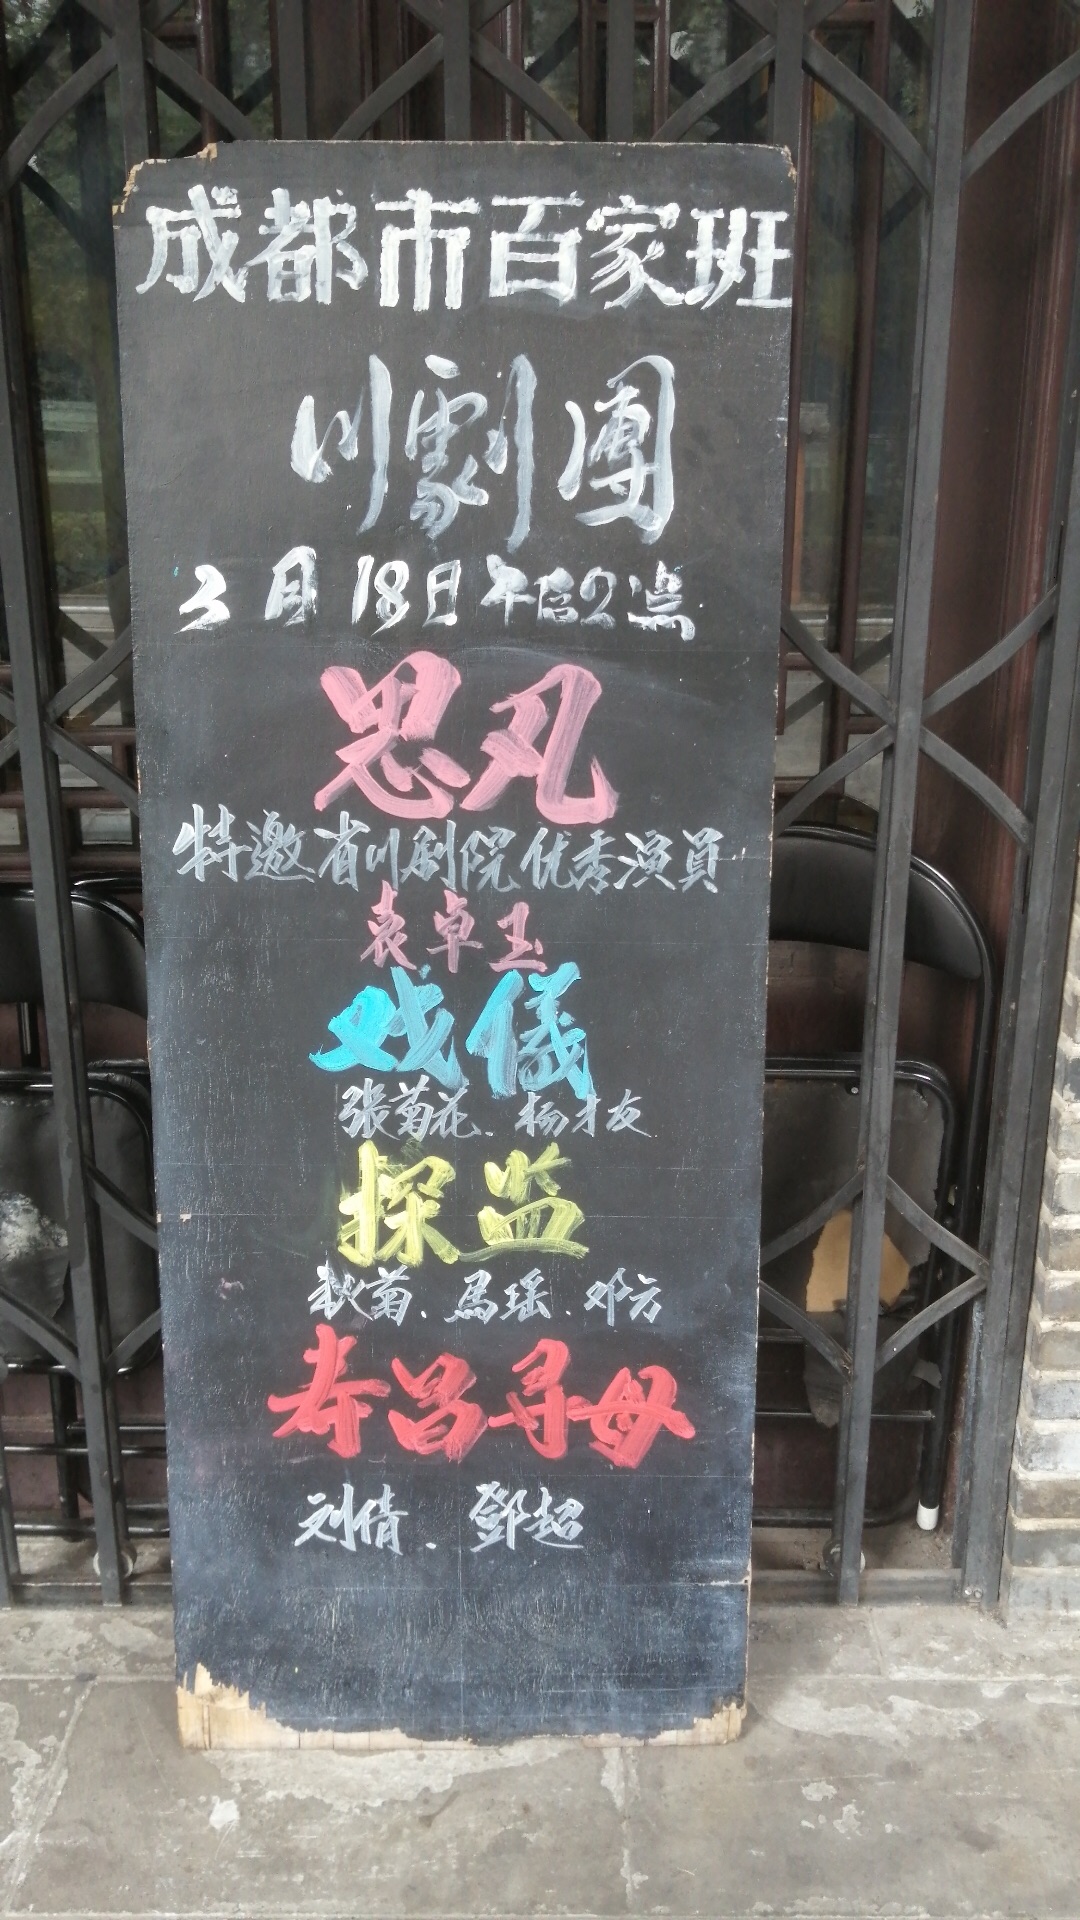 成都市百家班
川劇團
3月18日午后2点
思凡
特邀省川剧院优秀演員
袁卓玉
戏儀
張菊花.杨才友
探监
秋菊.馬瑶.邓方
寿昌寻母
刘倩.鄧超